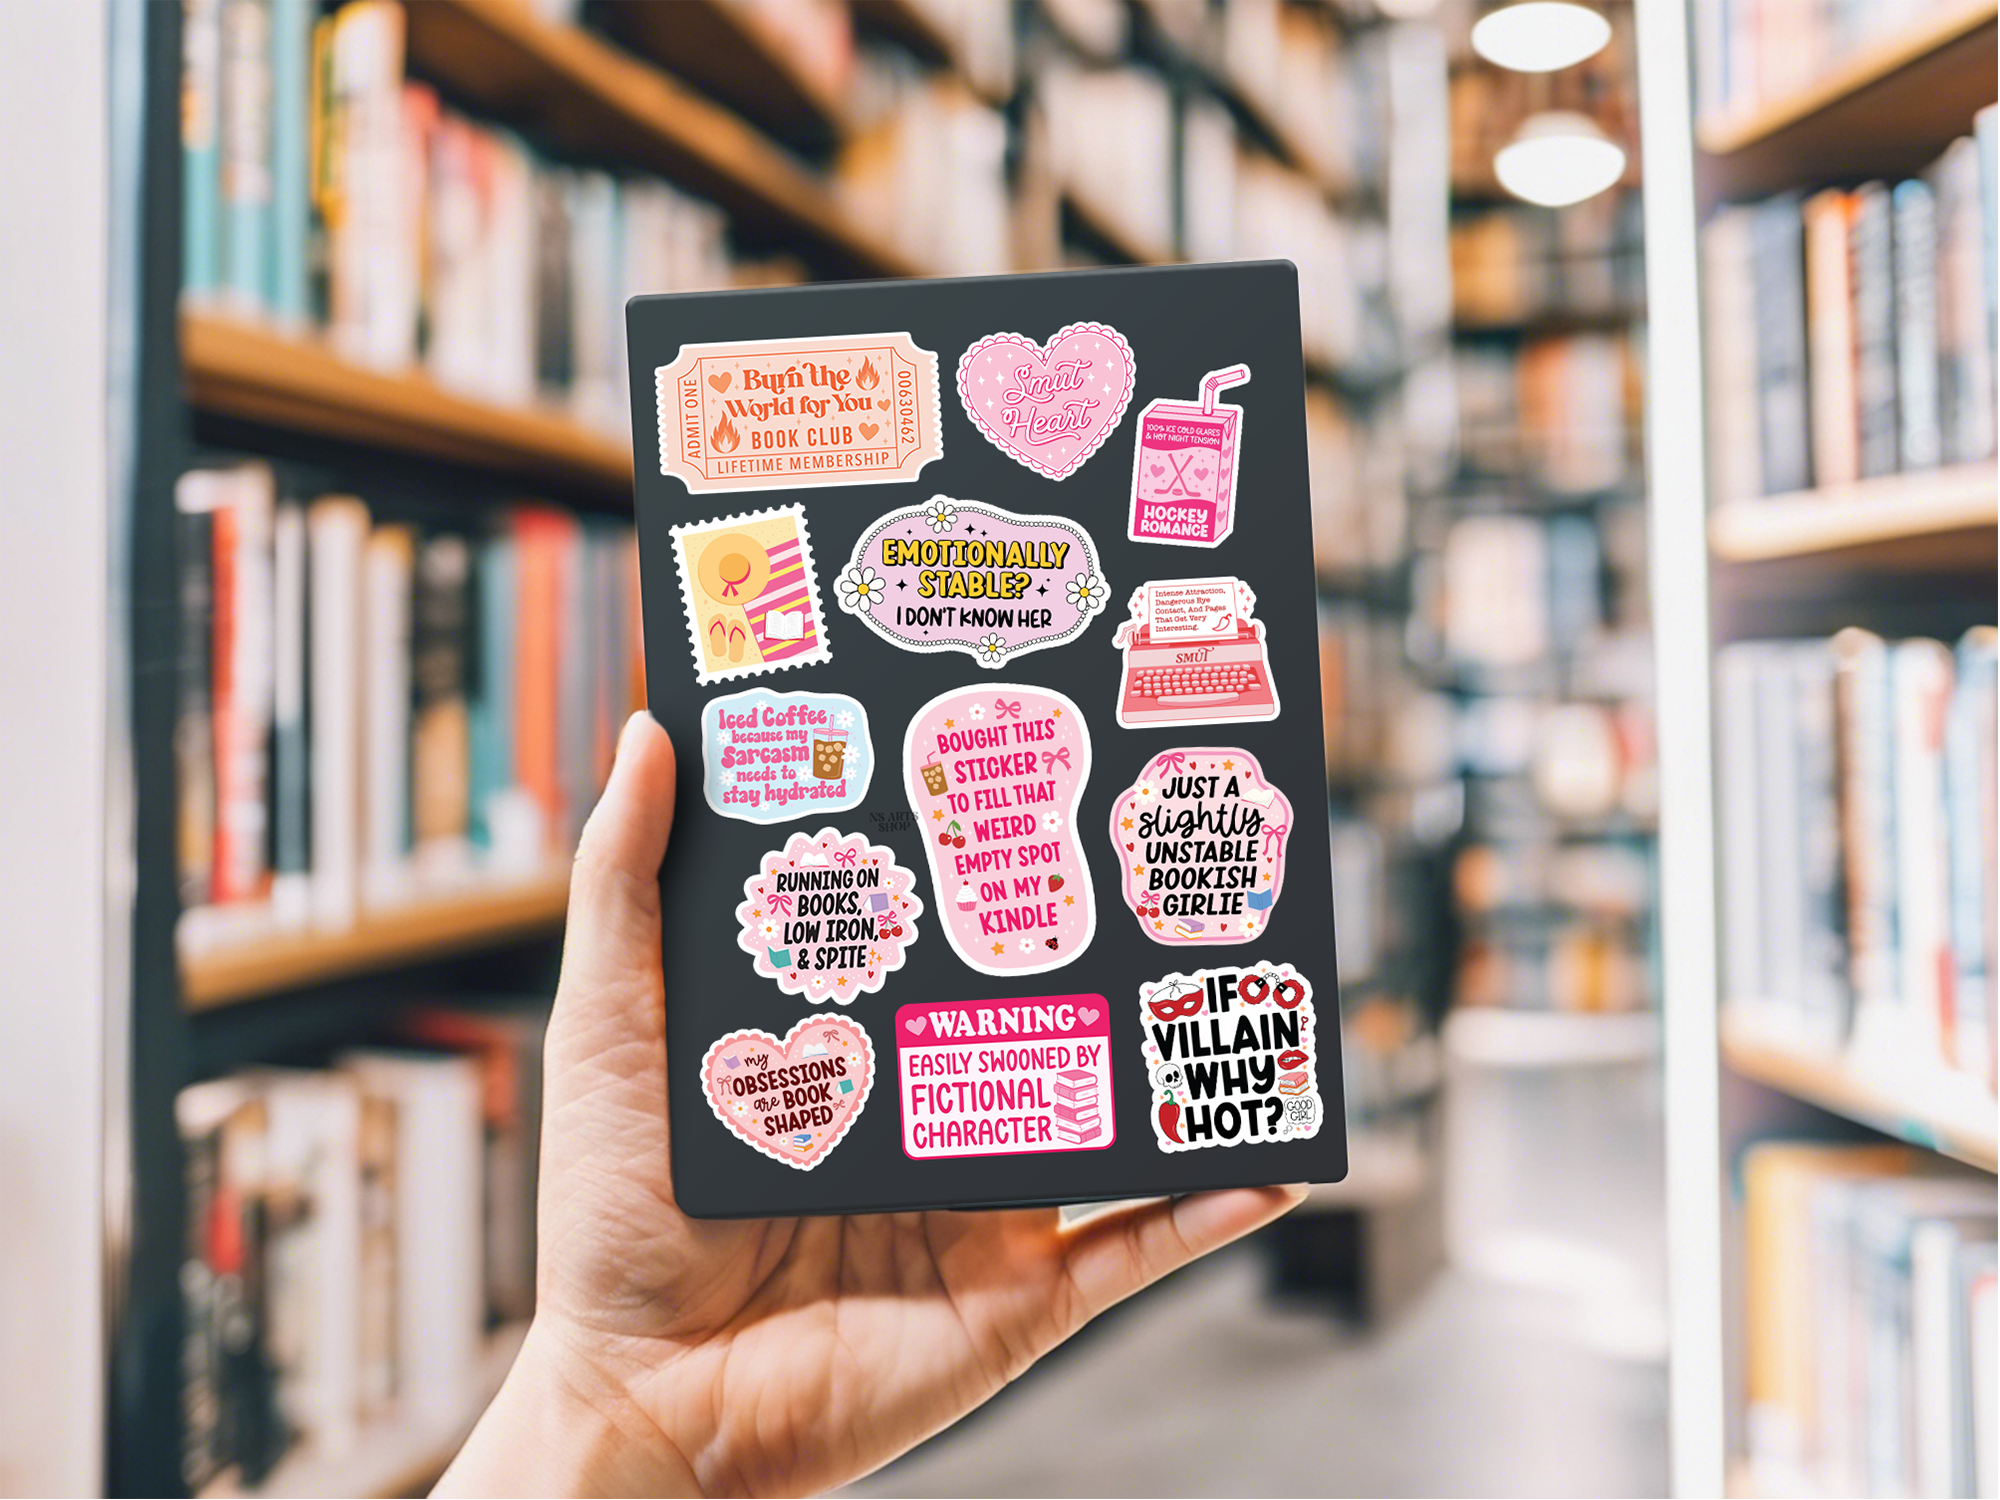 ADMIT ONE
Burn the
World for You
BOOK CLUB
LIFETIME MEMBERSHIP
00630462
Smut
Heart
100% ICE COLD GLARES
& HOT NIGHT TENSION
HOCKEY
ROMANCE
EMOTIONALLY
STABLE?
I DON'T KNOW HER
Intense Attraction,
Dangerous Eye
Contact, And Pages
That Get Very
Interesting.
SMUT
Iced Coffee
because my
Sarcasm
needs to
stay hydrated
BOUGHT THIS
STICKER
TO FILL THAT
WEIRD
EMPTY SPOT
ON MY
KINDLE
JUST A
slightly
UNSTABLE
BOOKISH
GIRLIE
NS ARTS
SHOP
RUNNING ON
BOOKS,
LOW IRON,
& SPITE
my
OBSESSIONS
are BOOK
SHAPED
WARNING
EASILY SWOONED BY
FICTIONAL
CHARACTER
IF
VILLAIN
WHY
HOT?
GOOD
GIRL